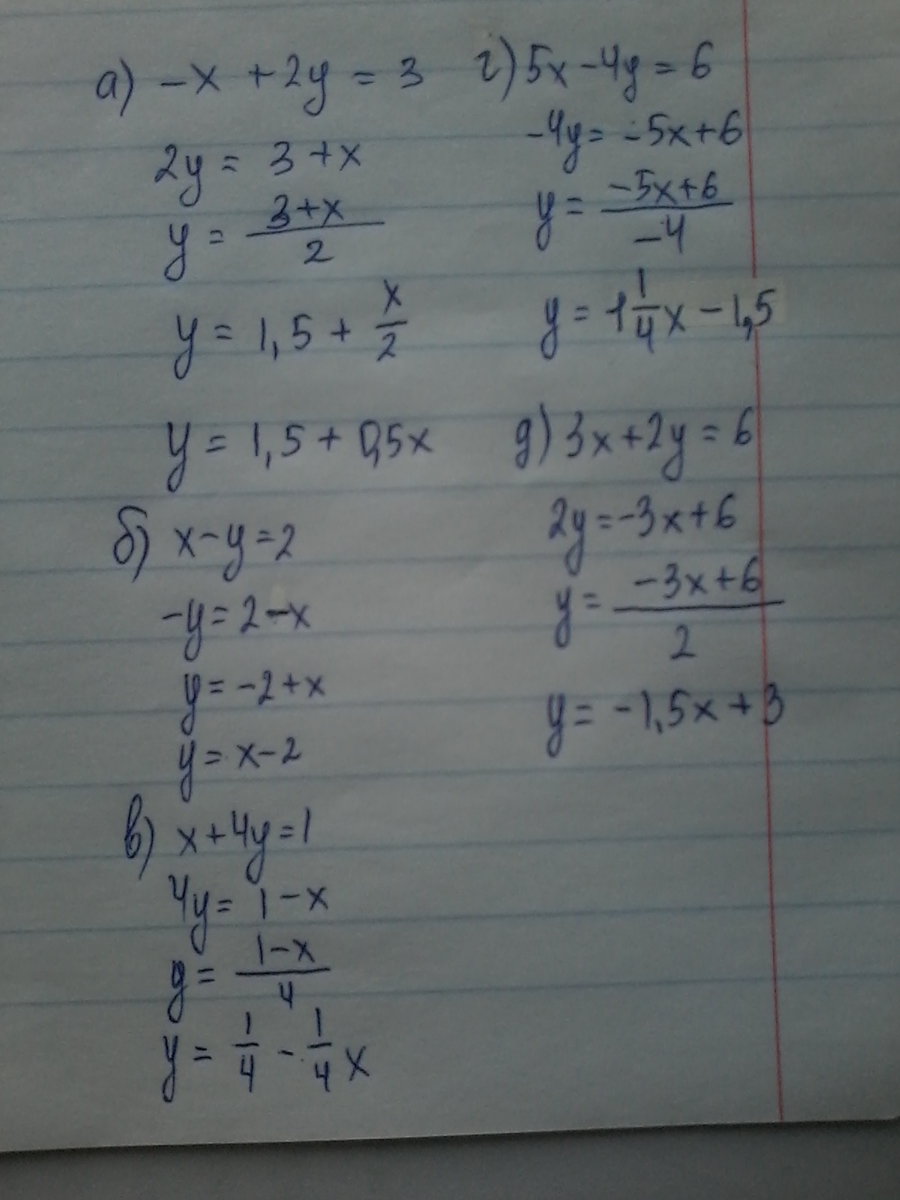 а) -x + 2y = 3
2y = 3 + x
y = (3+x)/2
y = 1,5 + x/2
y = 1,5 + 0,5x
б) x - y = 2
-y = 2 - x
y = -2 + x
y = x - 2
в) x + 4y = 1
4y = 1 - x
y = (1-x)/4
y = 1/4 - 1/4 x
г) 5x - 4y = 6
-4y = -5x + 6
y = (-5x+6)/-4
y = 1 1/4 x - 1,5
д) 3x + 2y = 6
2y = -3x + 6
y = (-3x+6)/2
y = -1,5x + 3